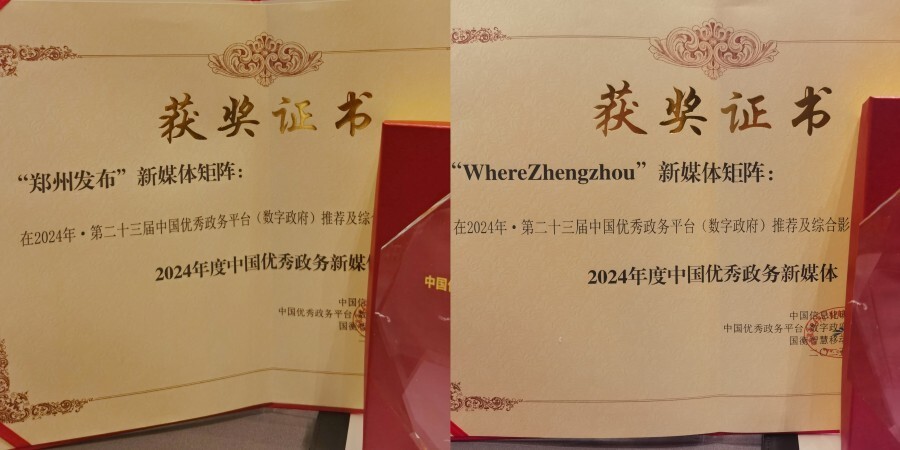 获奖证书
“郑州发布”新媒体矩阵:
在2024年·第二十三届中国优秀政务平台(数字政府)推荐及综合
2024年度中国优秀政务新媒体
中国信
中国优秀政务平台
国衡
中国优
获奖证书
“WhereZhengzhou”新媒体矩阵:
在2024年·第二十三届中国优秀政务平台(数字政府)推荐及综合影
2024年度中国优秀政务新媒体
中国信息化
中国优秀政务平台 数字政府
国衡智慧移动